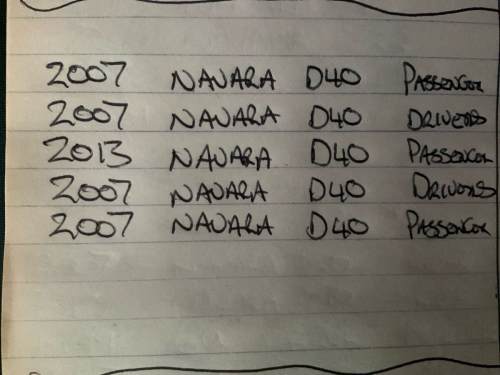 2007 NAVARA D40 PASSENGER
2007 NAVARA D40 DRIVERS
2013 NAVARA D40 PASSENGER
2007 NAVARA D40 DRIVERS
2007 NAVARA D40 PASSENGER